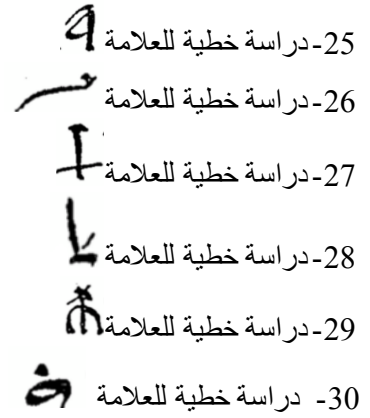 25-دراسة خطية للعلامة
26-دراسة خطية للعلامة
27-دراسة خطية للعلامة
28-دراسة خطية للعلامة
29-دراسة خطية للعلامة
30- دراسة خطية للعلامة